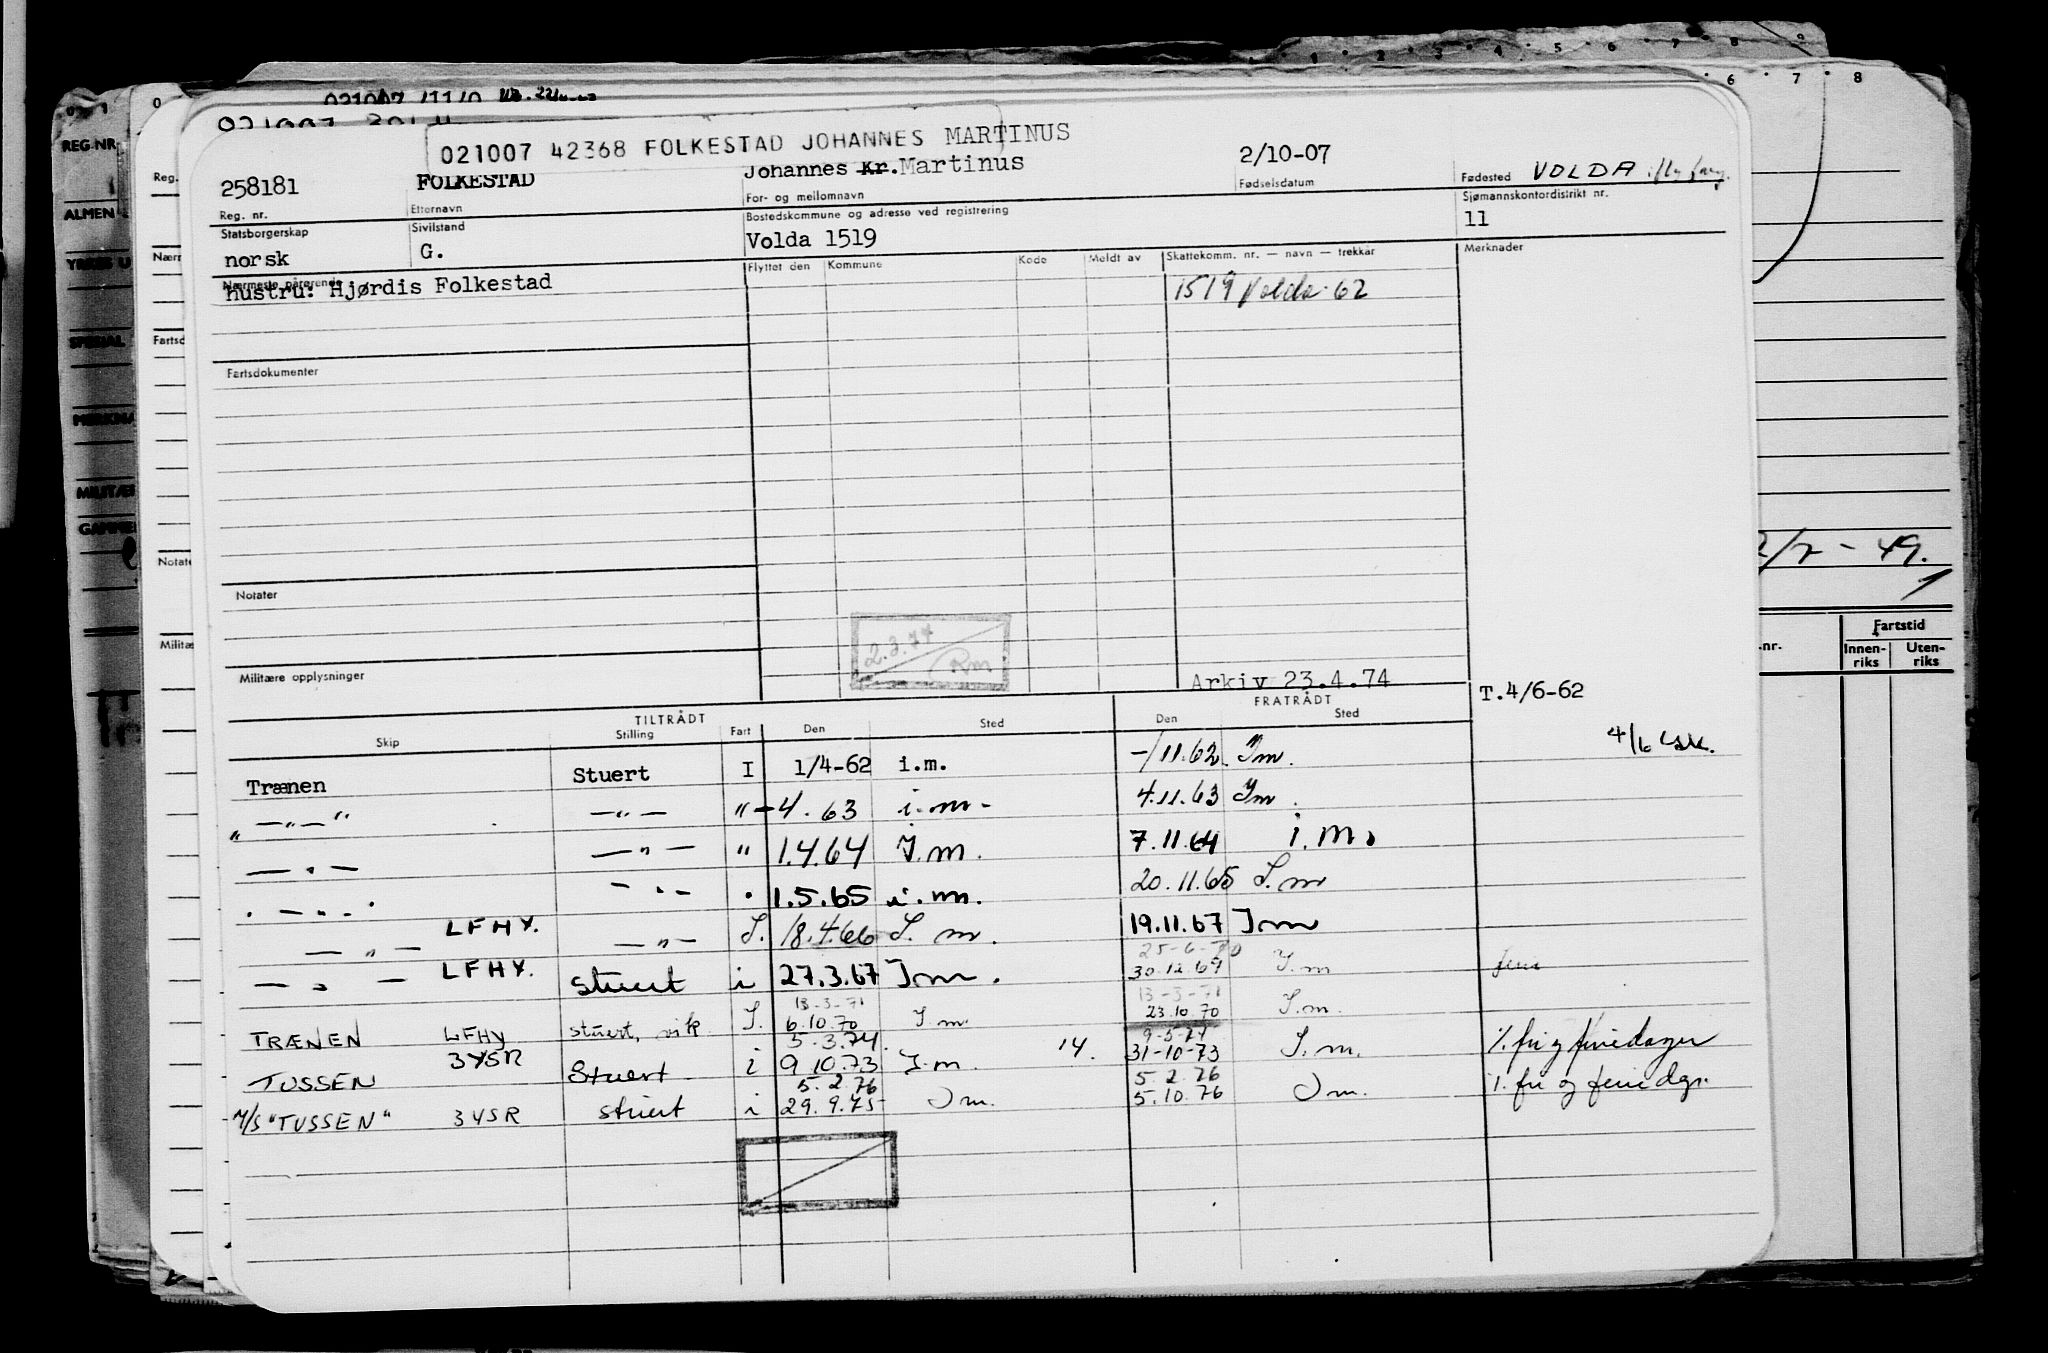 0 1 2 3 4 5 6 7 8 9
6 7 8
021007
021007 42368 FOLKESTAD JOHANNES MARTINUS
REG-NR
ALMEN
YRKES U
SPESIAL
MERKNA
MILITÆR
GAMME
Reg.
Nærm
Fartsd
Notate
Militæ
258181 FOLKESTAD Johannes Kr. Martinus 2/10-07 Fødested VOLDA
Reg. nr. Etternavn For- og mellomnavn Fødselsdatum Sjømannskontordistrikt nr.
Statsborgerskap Sivilstand Bostedskommune og adresse ved registrering 11
norsk G. Volda 1519
Nærmeste pårørende Flyttet den Kommune Kode Meldt av Skattekomm. nr. — navn — trekkår Merknader
hustru: Hjørdis Folkestad 1519 Volda 62
Fartsdokumenter
Notater
2.3.74
Rm
Militære opplysninger Arkiv 23.4.74
T.4/6-62
TILTRÅDT FRATRÅDT
Skip Stilling Fart Den Sted Den Sted
4/6
Trænen Stuert I 1/4-62 i.m. -/11.62 Im.
" — " — " — " — " -4.63 i.m- 4.11.63 Im.
— " — — " — " 1.4.64 I.m. 7.11.64 i.m.
— " — — " — 1.5.65 i.m. 20.11.65 I.m
— " — LFHY. — " — I. 18.4.66 I.m. 19.11.67 Im
25-6-70
— " — LFHY. stuert i 27.3.67 Im. 30.12.69 I.m ferie
13-3-71 13-3-71
TRÆNEN LFHY stuert, vik I. 6.10.70 I.m. 23.10.70 I.m.
5.3.74. 9-5-74
TUSSEN 3YSR Stuert i 9.10.73 I.m. 14. 31-10-73 I.m. %. fri og feriedager
5.2.76 5.2.76
M/S "TUSSEN" 3YSR stuert i 29.9.75 Im. 5.10.76 Im. %. fri og feriedgr.
2/7 - 49.
Fartstid
nr. Innen-riks Uten-riks